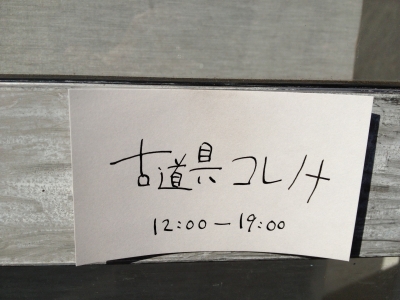 古道具コレノナ
12:00—19:00